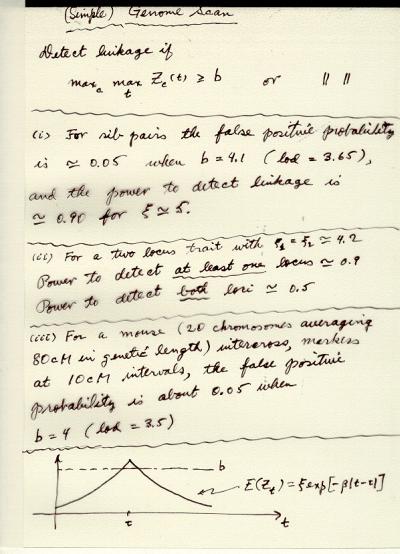 (Simple) Genome Scan
Detect linkage if
max_c max_t Z_c(t) ≥ b or " "
(i) For sib pairs the false positive probability
is ≃ 0.05 when b = 4.1 (lod = 3.65),
and the power to detect linkage is
≃ 0.90 for ξ ≃ 5.
(ii) For a two locus trait with ξ₁ = ξ₂ ≃ 4.2
Power to detect at least one locus ≃ 0.9
Power to detect both loci ≃ 0.5
(iii) For a mouse (20 chromosomes averaging
80cM in genetic length) intercross, markers
at 10cM intervals, the false positive
probability is about 0.05 when
b = 4 (lod = 3.5)
b
E(Z_t) = ξ exp[-β|t-τ|]
τ
t